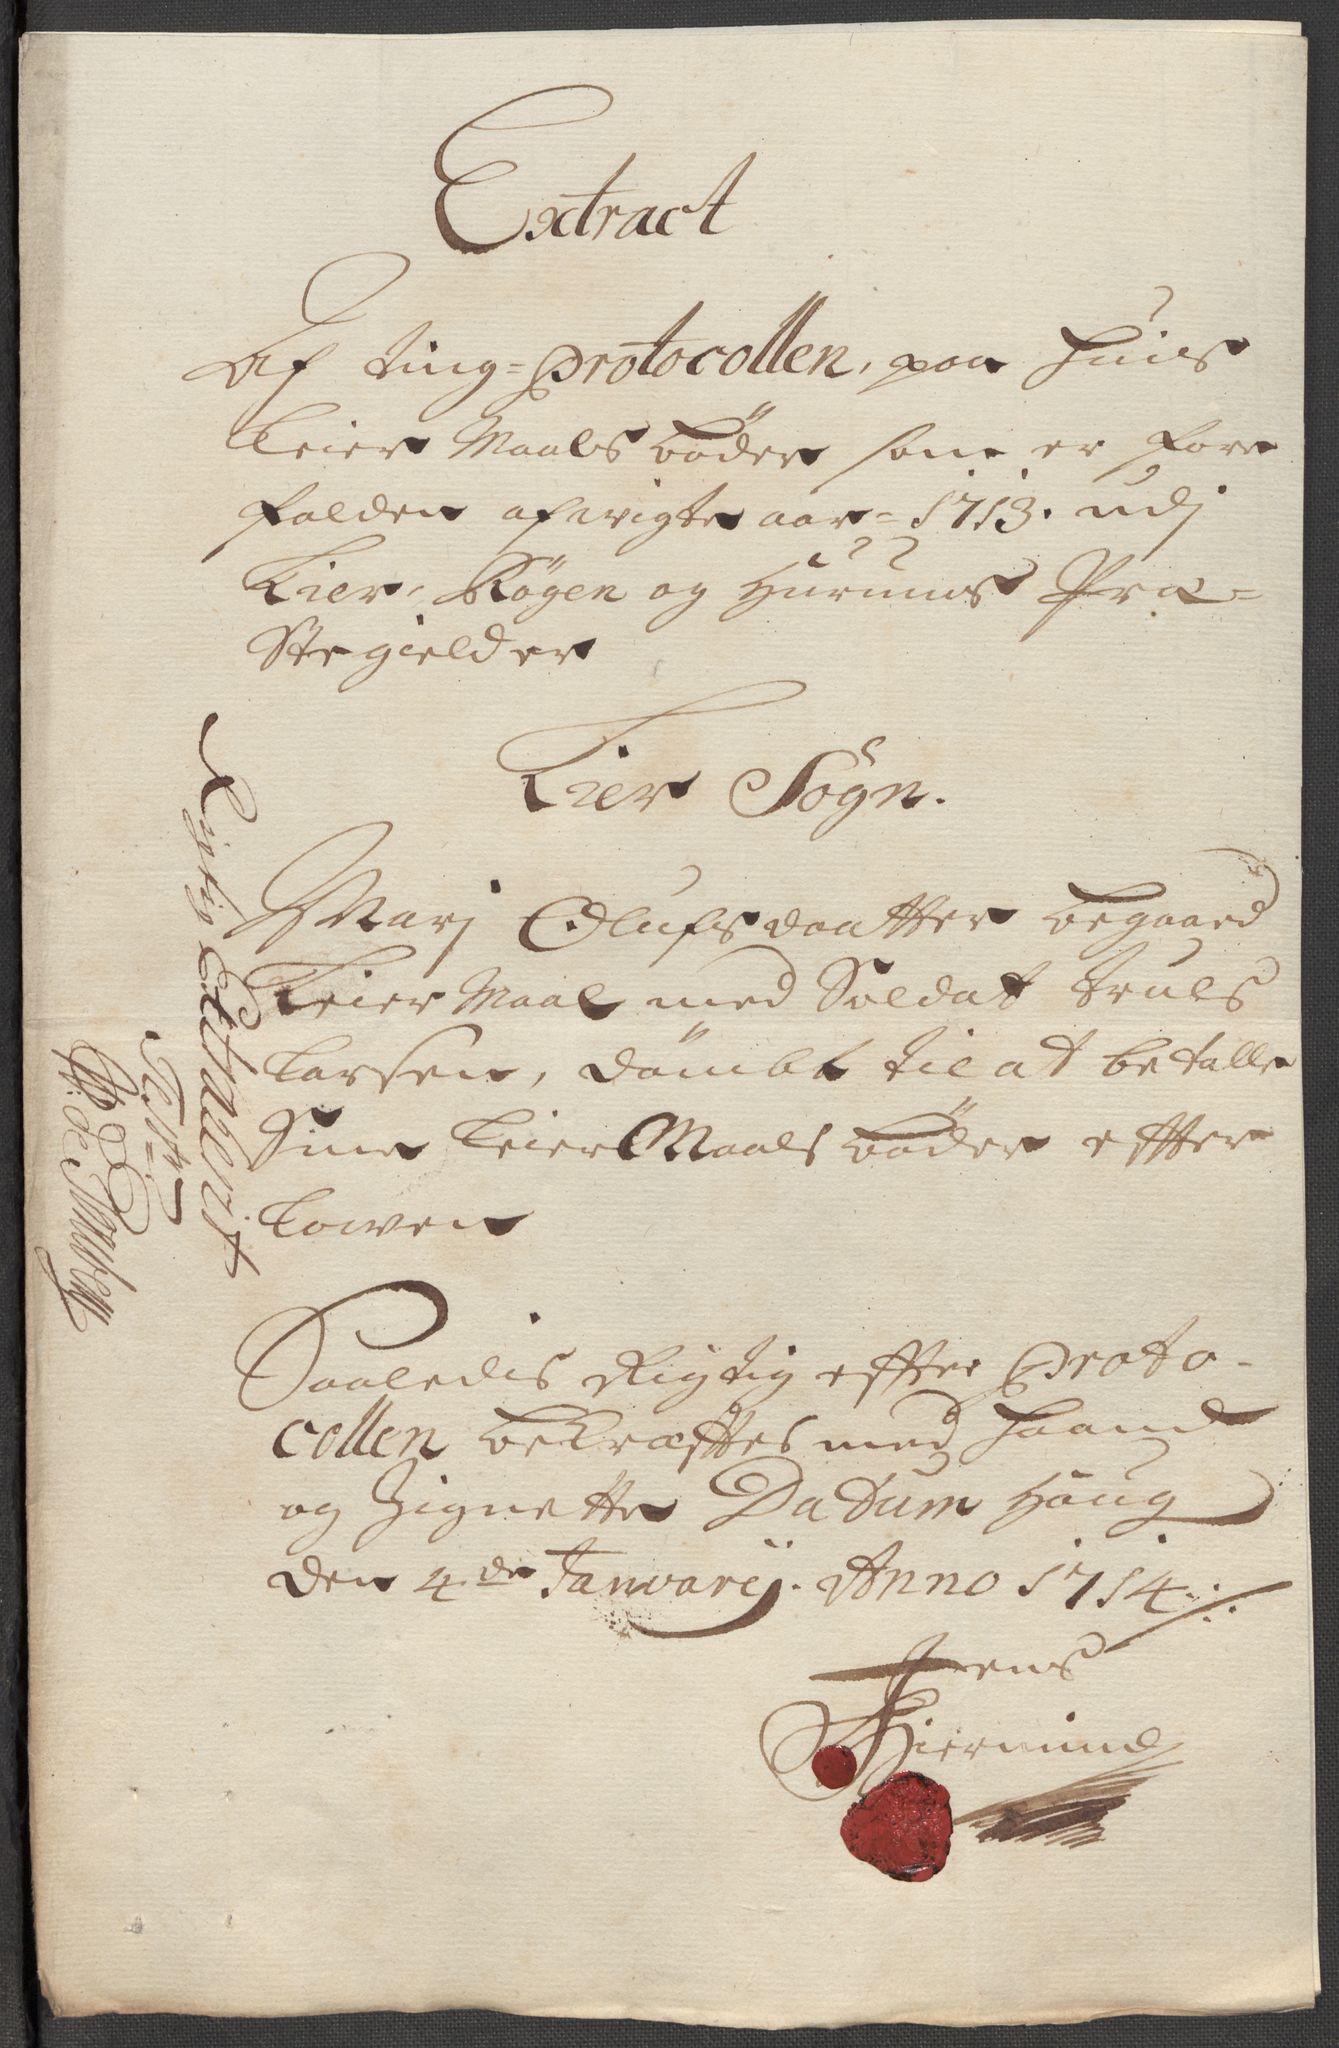 Extract
Af ting=Protocollen, paa huis
Leier Maals böder som er fore
falden afvigte aar= 1713. udj
Lier, Rögen og Hurums Præ=
stegielder
Lier Sogn.
Marj Olufsdaatter begaaed
Leiermaal med Soldat truls
Larsen, dömbt til at betalle
Sine Leier Maals böder effter
Lowen
Saaledis Rigtig effter Proto-
collen bekræfftes med haand
og Zignette Datum Houg
den 4de Januarij. Anno 1714
Jens
Rigtig Extraherit
Test: